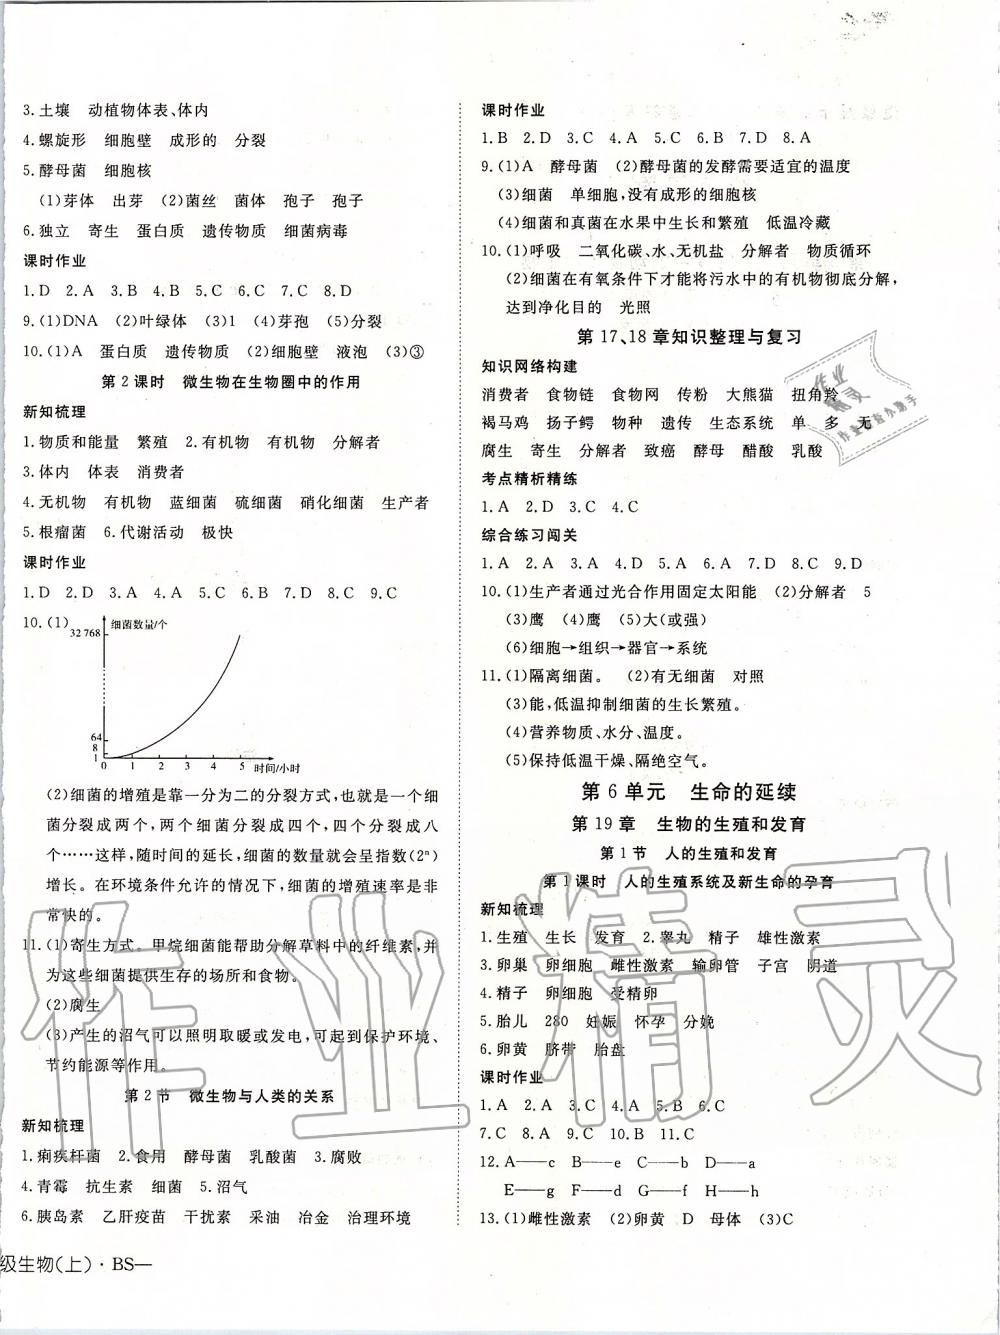 3.土壤 动植物体表、体内
4.螺旋形 细胞壁 成形的 分裂
5.酵母菌 细胞核
(1)芽体 出芽 (2)菌丝 菌体 孢子 孢子
6.独立 寄生 蛋白质 遗传物质 细菌病毒
课时作业
1.D 2.A 3.B 4.B 5.C 6.C 7.C 8.D
9.(1)DNA (2)叶绿体 (3)1 (4)芽孢 (5)分裂
10.(1)A 蛋白质 遗传物质 (2)细胞壁 液泡 (3)③
第2课时 微生物在生物圈中的作用
新知梳理
1.物质和能量 繁殖 2.有机物 有机物 分解者
3.体内 体表 消费者
4.无机物 有机物 蓝细菌 硫细菌 硝化细菌 生产者
5.根瘤菌 6.代谢活动 极快
课时作业
1.D 2.D 3.A 4.A 5.C 6.B 7.C 8.B 9.C
10.(1)
细菌数量/个
32 768
64
8
1
0 1 2 3 4 5 时间/小时
(2)细菌的增殖是靠一分为二的分裂方式,也就是一个细
菌分裂成两个,两个细菌分裂成四个,四个分裂成八
个……这样,随时间的延长,细菌的数量就会呈指数(2ⁿ)
增长。在环境条件允许的情况下,细菌的增殖速率是非
常快的。
11.(1)寄生方式。甲烷细菌能帮助分解草料中的纤维素,并
为这些细菌提供生存的场所和食物。
(2)腐生
(3)产生的沼气可以照明取暖或发电,可起到保护环境、
节约能源等作用。
第2节 微生物与人类的关系
新知梳理
1.痢疾杆菌 2.食用 酵母菌 乳酸菌 3.腐败
4.青霉 抗生素 细菌 5.沼气
6.胰岛素 乙肝疫苗 干扰素 采油 冶金 治理环境
级生物(上)·BS—
课时作业
1.B 2.D 3.C 4.A 5.C 6.B 7.D 8.A
9.(1)A 酵母菌 (2)酵母菌的发酵需要适宜的温度
(3)细菌 单细胞,没有成形的细胞核
(4)细菌和真菌在水果中生长和繁殖 低温冷藏
10.(1)呼吸 二氧化碳、水、无机盐 分解者 物质循环
(2)细菌在有氧条件下才能将污水中的有机物彻底分解,
达到净化目的 光照
第17、18章知识整理与复习
知识网络构建
消费者 食物链 食物网 传粉 大熊猫 扭角羚
褐马鸡 扬子鳄 物种 遗传 生态系统 单 多 无
腐生 寄生 分解者 致癌 酵母 醋酸 乳酸
考点精析精练
1.A 2.D 3.C 4.C
综合练习闯关
1.A 2.A 3.A 4.D 5.D 6.A 7.A 8.A 9.D
10.(1)生产者通过光合作用固定太阳能 (2)分解者 5
(3)鹰 (4)鹰 (5)大(或强)
(6)细胞→组织→器官→系统
11.(1)隔离细菌。 (2)有无细菌 对照
(3)能,低温抑制细菌的生长繁殖。
(4)营养物质、水分、温度。
(5)保持低温干燥、隔绝空气。
第6单元 生命的延续
第19章 生物的生殖和发育
第1节 人的生殖和发育
第1课时 人的生殖系统及新生命的孕育
新知梳理
1.生殖 生长 发育 2.睾丸 精子 雄性激素
3.卵巢 卵细胞 雌性激素 输卵管 子宫 阴道
4.精子 卵细胞 受精卵
5.胎儿 280 妊娠 怀孕 分娩
6.卵黄 脐带 胎盘
课时作业
1.A 2.C 3.D 4.A 5.B 6.C
7.C 8.A 9.C 10.B 11.C
12.A——c B——e C——b D——a
E——g F——d G——f H——h
13.(1)雌性激素 (2)卵黄 D 母体 (3)C
作业精灵
作业精灵
作业检查小助手